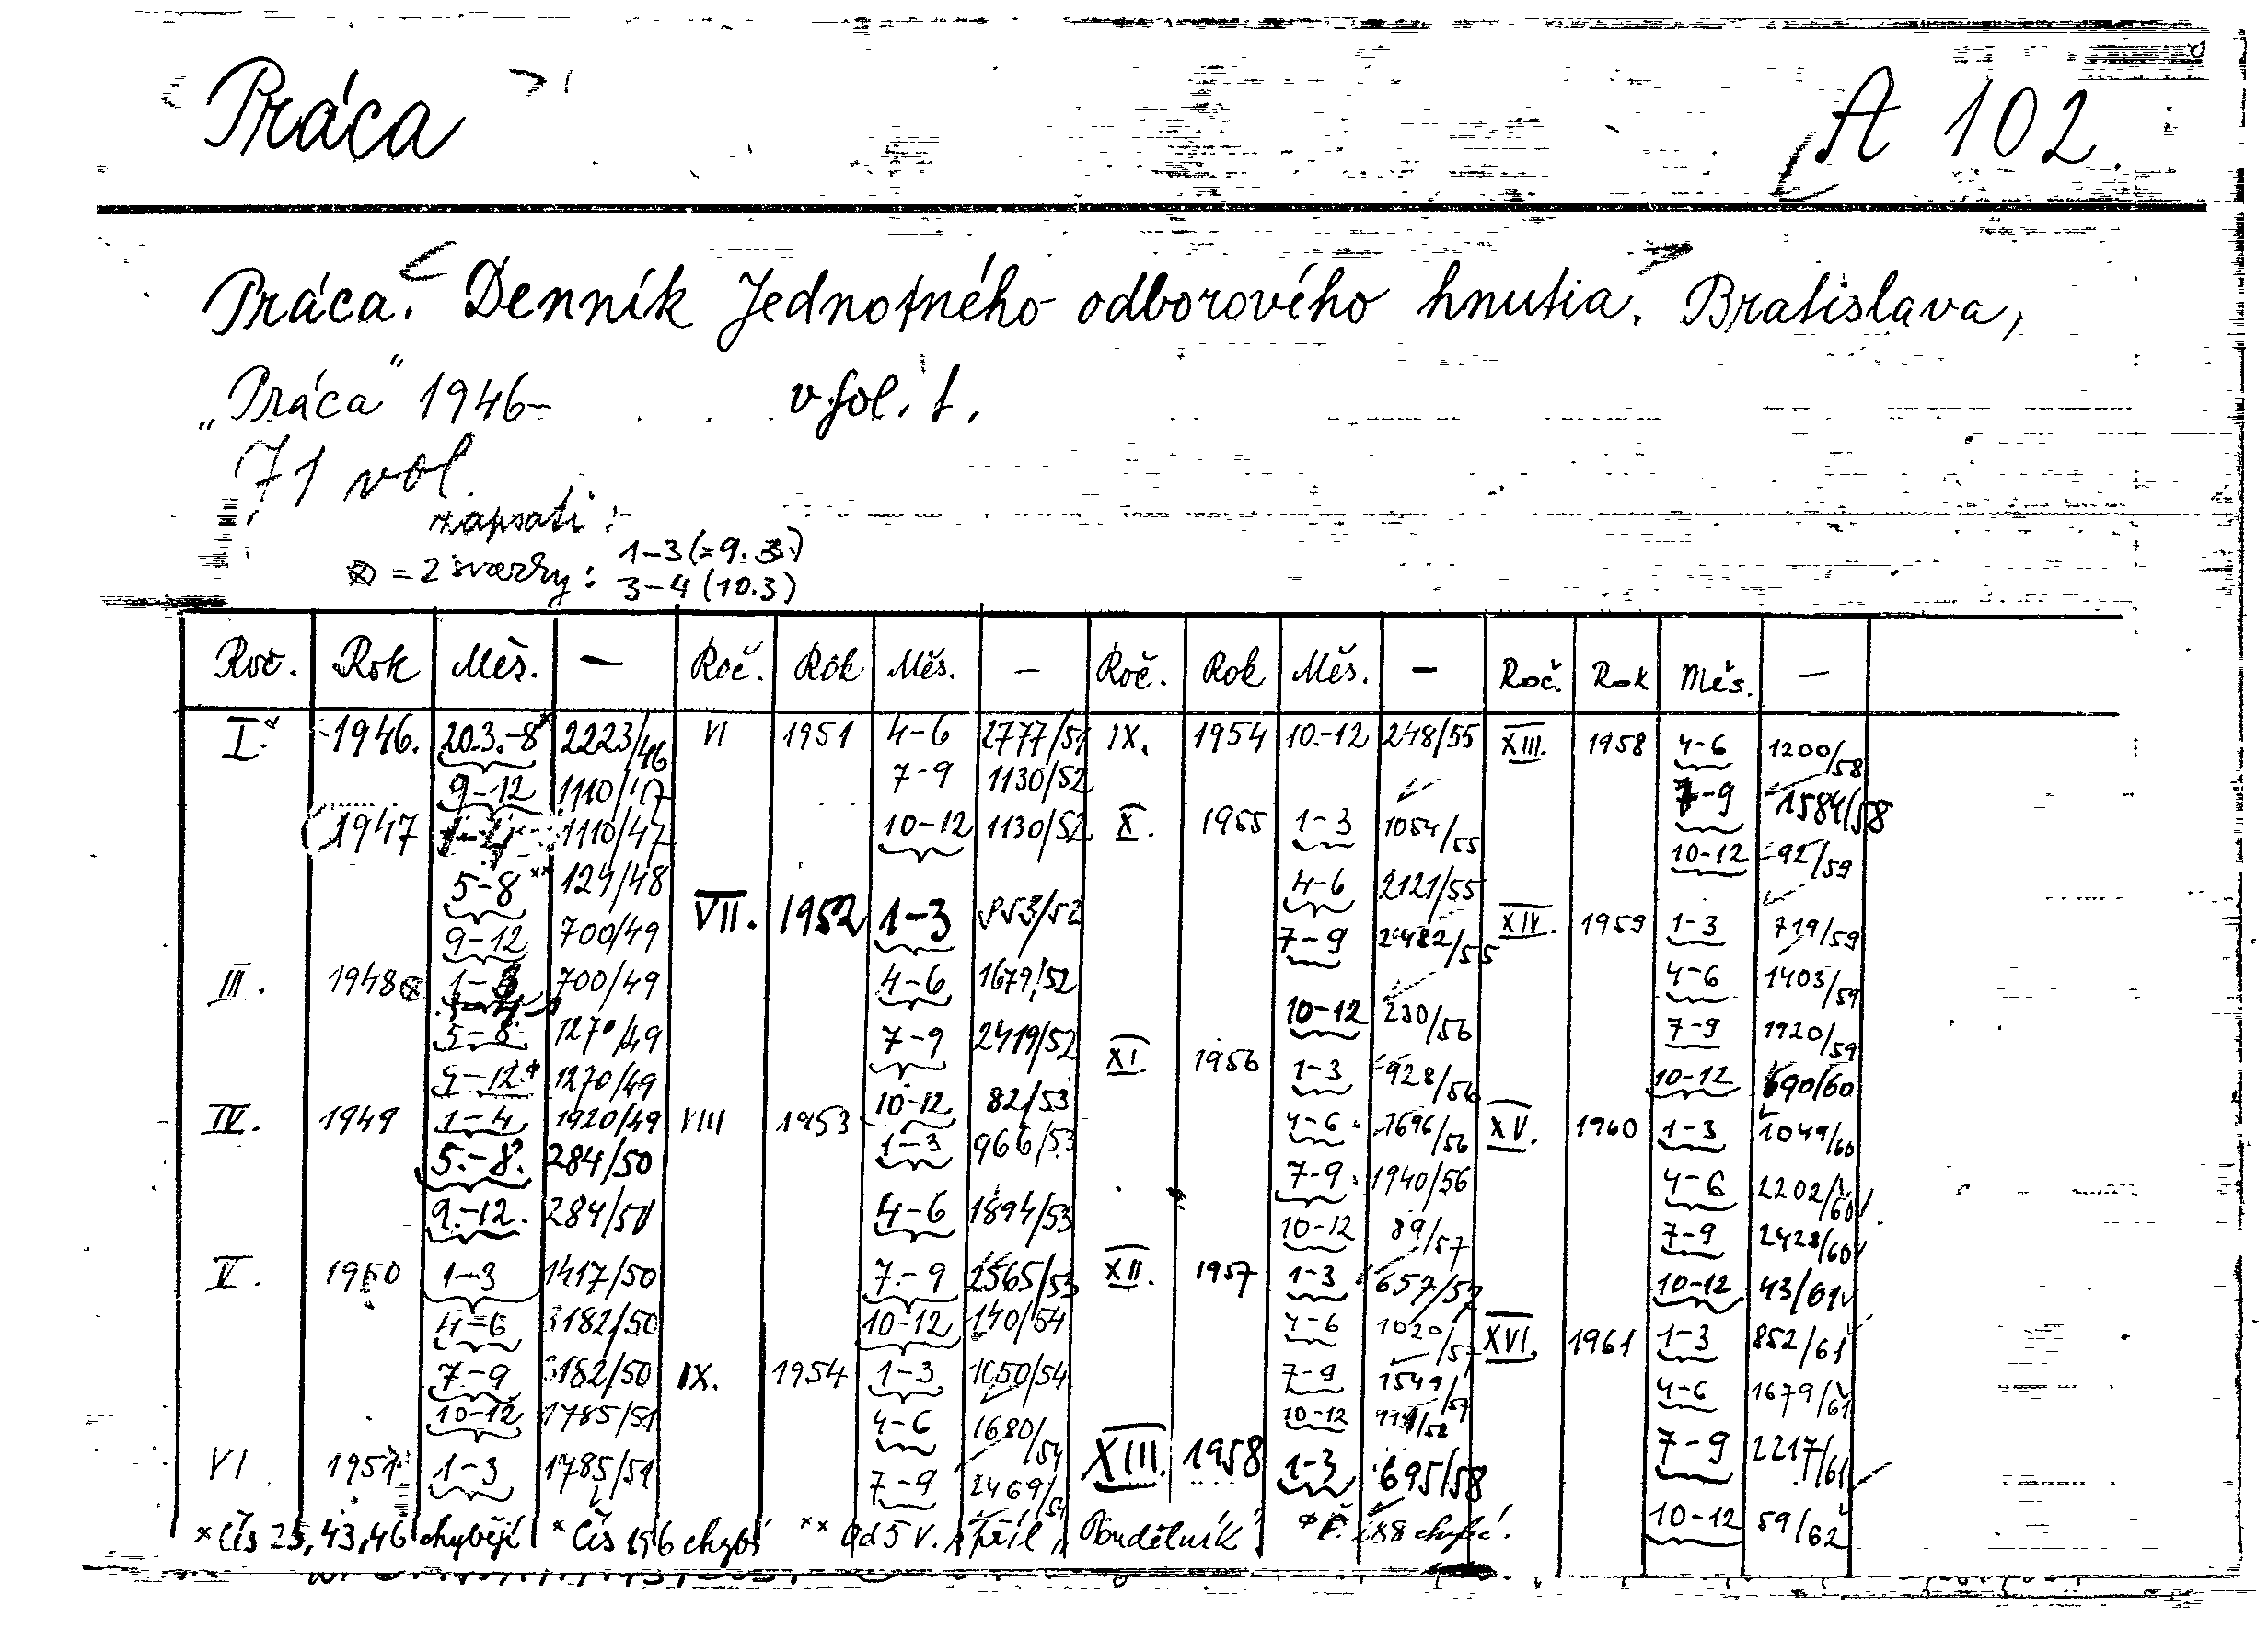 Práca A 102.
Práca. Denník Jednotného odborového hnutia. Bratislava,
„Práca" 1946– v fol. f.
71 vol.
zapsati:
⊗ = 2 svazky: 1–3 (=9.3.)
3–4 (10.3)
Roč. Rok Měs. — Roč. Rok Měs. — Roč. Rok Měs. — Roč. Rok Měs. —
I. 1946. 20.3.–8* 2223/46 VI 1951 4–6 2777/51 IX. 1954 10.–12 248/55 XIII. 1958 4–6 1200/58
9–12 1110/47 7–9 1130/52 7–9 1584/58
1947 1110/47 10–12 1130/52 X. 1955 1–3 1054/55 10–12 92/59
5–8** 124/48 VII. 1952 1–3 953/52 4–6 2121/55 XIV. 1959 1–3 719/59
9–12 700/49 7–9 2482/55
III. 1948⊗ 700/49 4–6 1679/52 10–12 230/56 4–6 1403/59
5–8 1270/49 7–9 2419/52 XI. 1956 1–3 928/56 7–9 1920/59
9–12* 1270/49 10–12 82/53 10–12 690/60
IV. 1949 1–4 1920/49 VIII 1953 1–3 966/53 4–6 1696/56 XV. 1960 1–3 1049/60
5.–8. 284/50 7–9 1940/56 4–6 2202/60
9.–12. 284/50 4–6 1894/53 10–12 89/57 7–9 2428/60
V. 1950 1–3 1417/50 7.–9 2565/53 XII. 1957 1–3 657/57 10–12 43/61
4–6 3182/50 10–12 140/54 4–6 1020/57 XVI. 1961 1–3 852/61
7–9 3182/50 IX. 1954 1–3 1050/54 7–9 1549/57 4–6 1679/61
10–12 1785/51 4–6 1680/54 10–12
VI 1951 1–3 1785/51 7–9 2469/54 XIII. 1958 1–3 695/58 7–9 2217/61
10–12 59/62
* Čís 25, 43, 46 chybějí * Čís 196 chybí ** od 5 V. s příl. „Pondělník" 188 chybí.